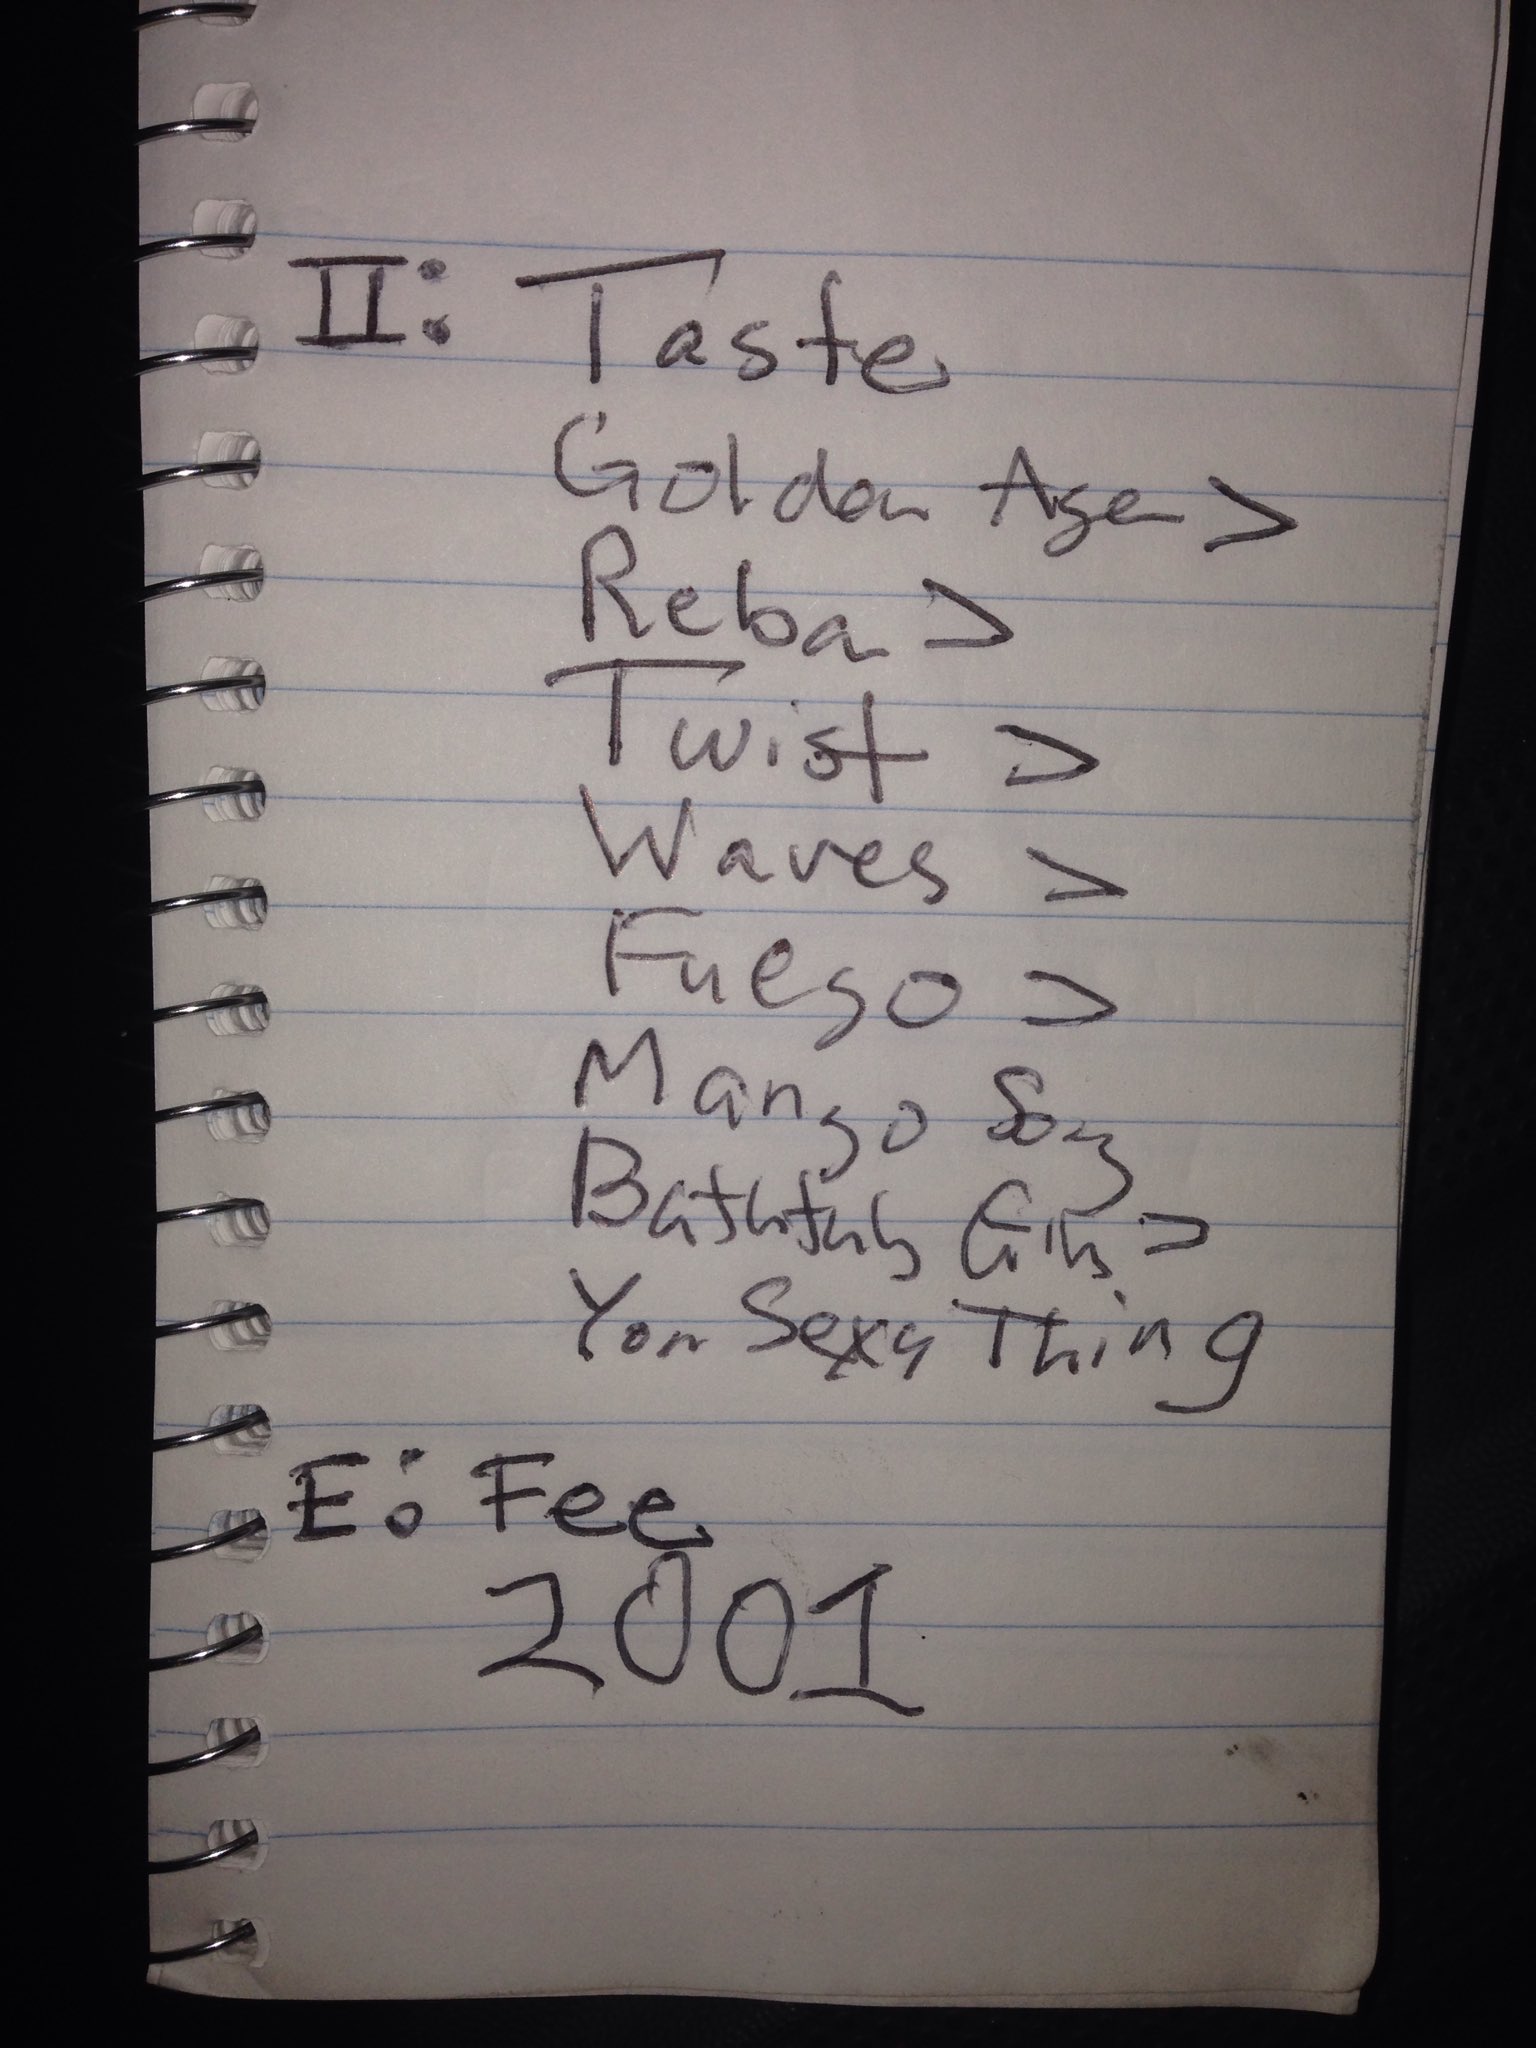 II: Taste
Golden Age >
Reba >
Twist >
Waves >
Fuego >
Mango Song
Bathtub Gin >
You Sexy Thing
E: Fee
2001